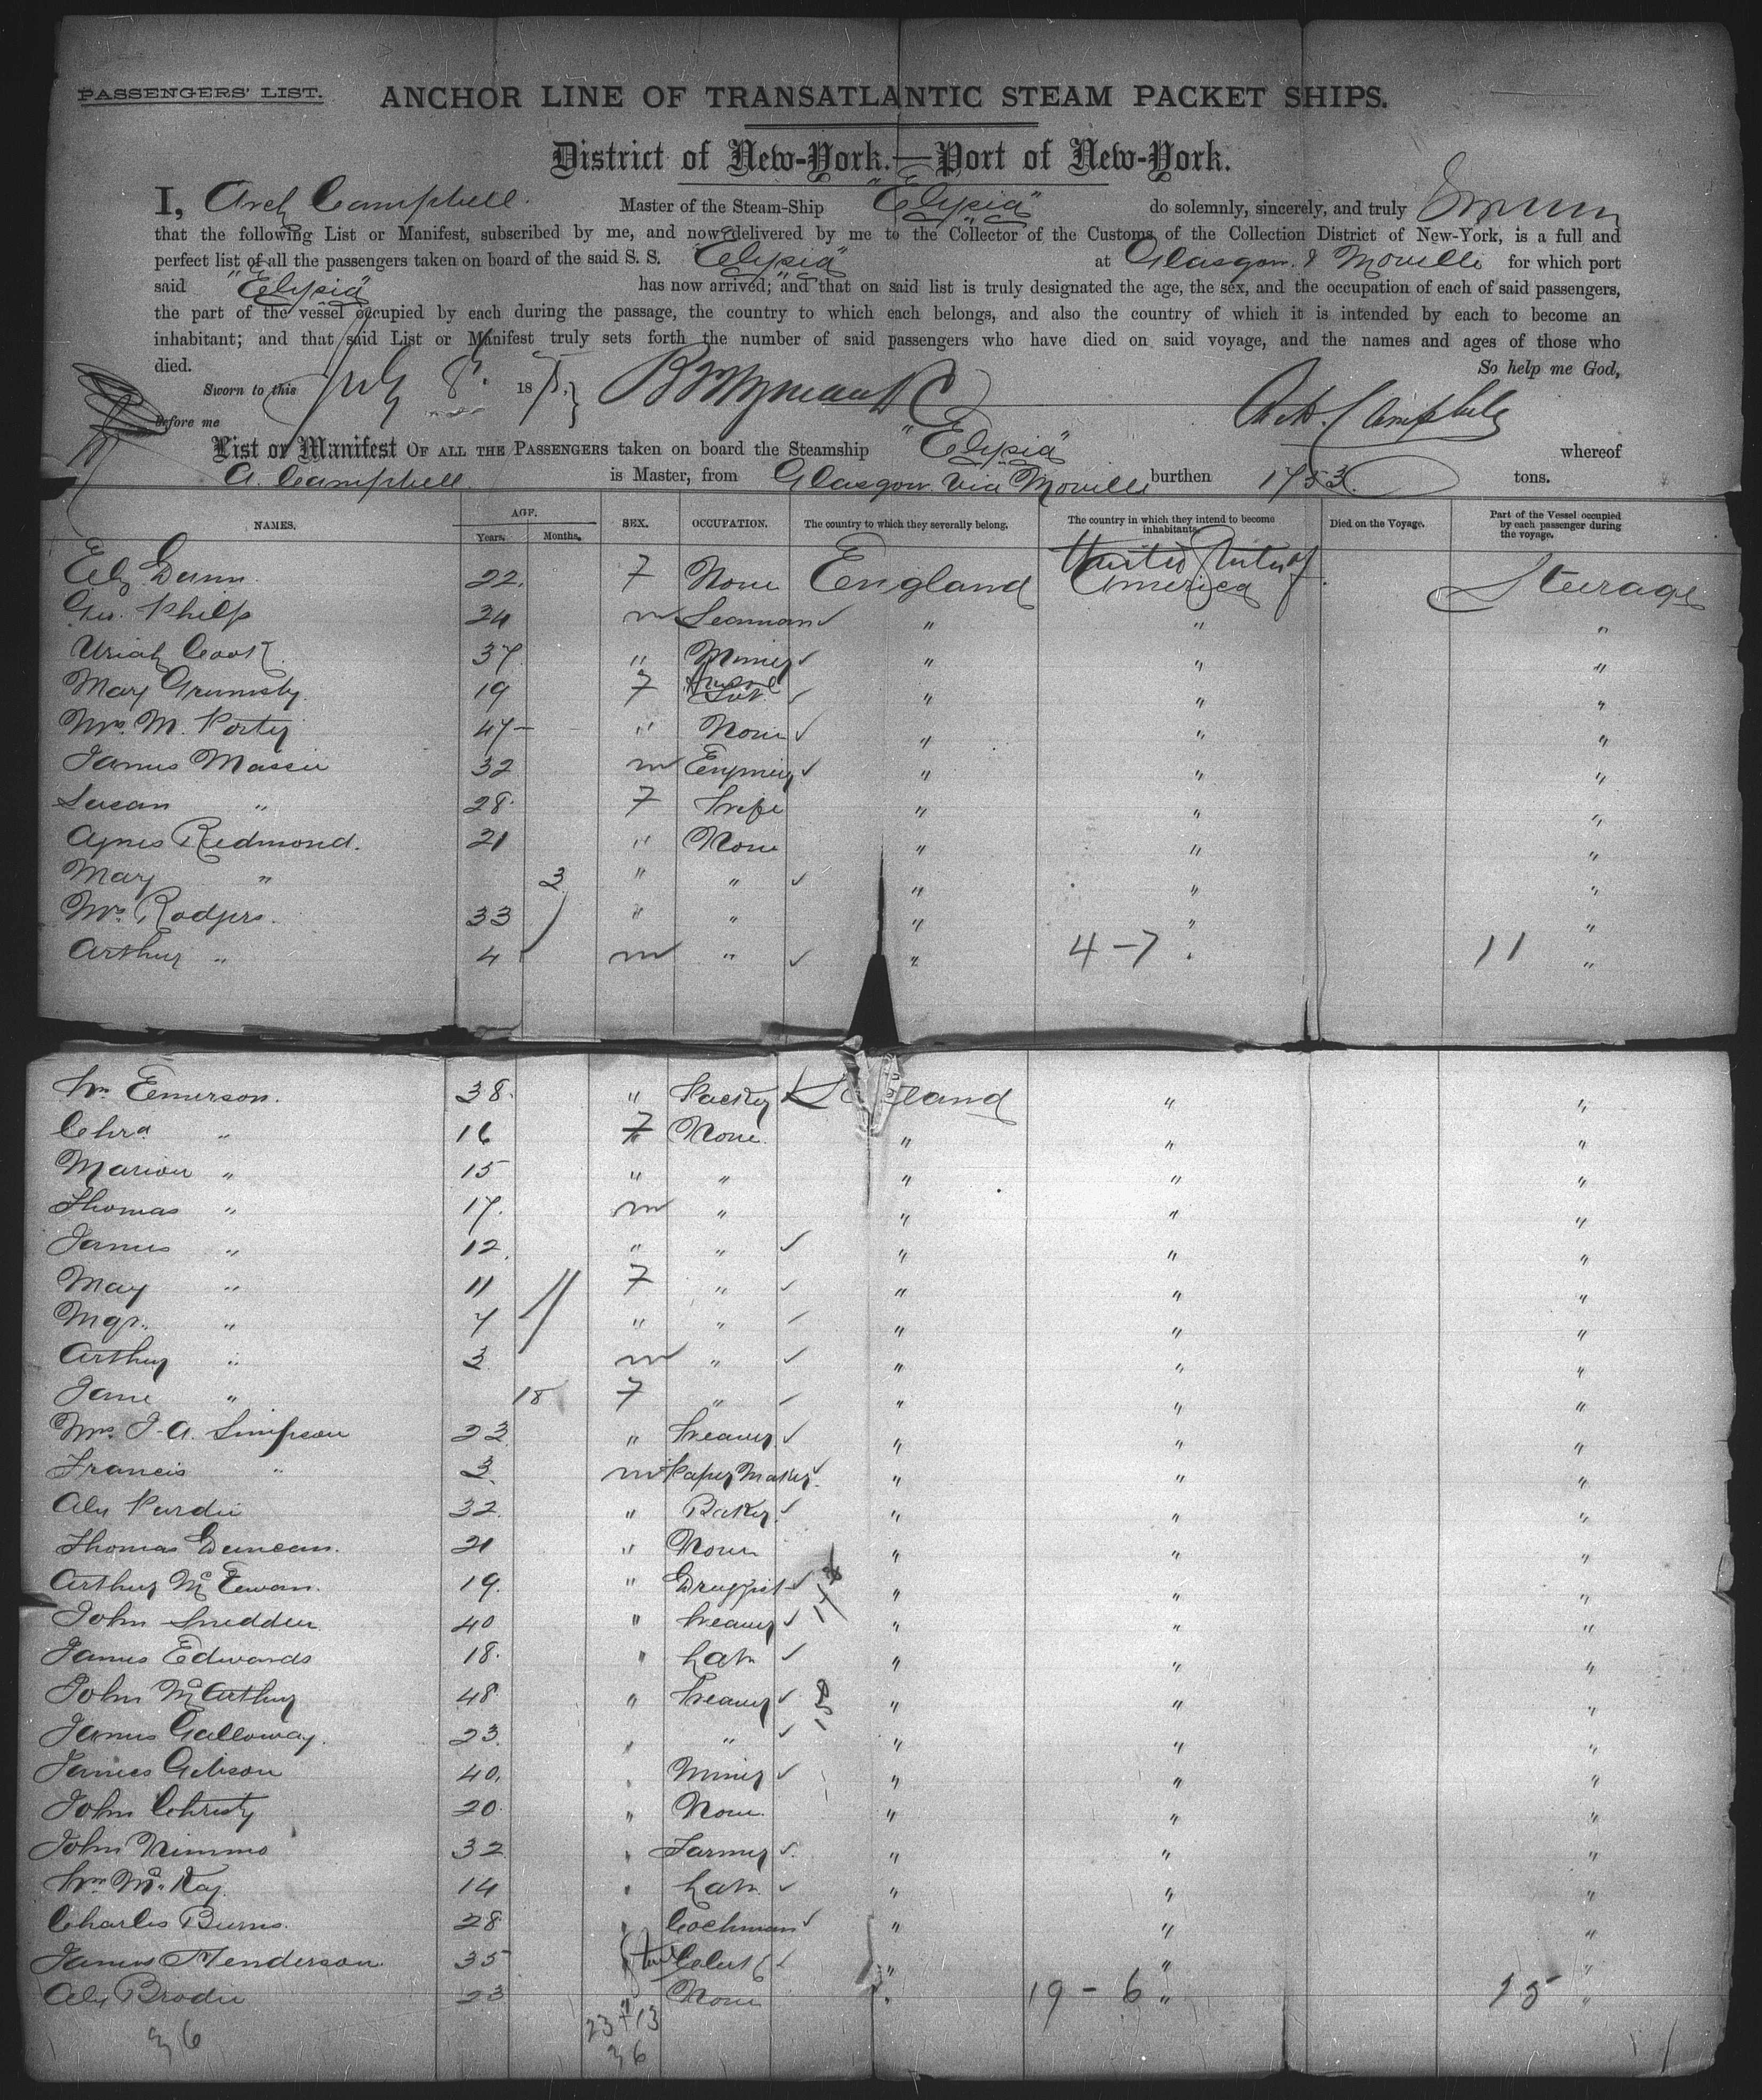 PASSENGERS' LIST.
ANCHOR LINE OF TRANSATLANTIC STEAM PACKET SHIPS.
District of New-York.—Port of New-York.
I, Arch Campbell. Master of the Steam-Ship "Elysia" do solemnly, sincerely, and truly
that the following List or Manifest, subscribed by me, and now delivered by me to the Collector of the Customs of the Collection District of New-York, is a full and
perfect list of all the passengers taken on board of the said S. S. "Elysia" at Glasgow & Moville for which port
said "Elysia" has now arrived; and that on said list is truly designated the age, the sex, and the occupation of each of said passengers,
the part of the vessel occupied by each during the passage, the country to which each belongs, and also the country of which it is intended by each to become an
inhabitant; and that said List or Manifest truly sets forth the number of said passengers who have died on said voyage, and the names and ages of those who
died. So help me God,
Sworn to this July 8. 18
Before me Arch. Campbell
List or Manifest OF ALL THE PASSENGERS taken on board the Steamship "Elysia" whereof
A. Campbell is Master, from Glasgow via Moville burthen 1753. tons.
NAMES. AGE. SEX. OCCUPATION. The country to which they severally belong. The country in which they intend to become inhabitants. Died on the Voyage. Part of the Vessel occupied by each passenger during the voyage.
Years. Months.
Eliz Dunn. 22. F None England United States of America Steerage
Geo. Philp 24 m Seaman " " "
Uriah Cook 37 " Miner " " "
Mary Grumsby. 19 F " " "
Mrs. M. Porter 47 " None " " "
James Massie 32 m Engineer " " "
Susan " 28. F Wife " " "
Agnes Redmond. 21 " None " " "
Mary " 3 " " " " "
Mrs. Rodgers. 33 " " " " "
Arthur " 4 m " " 4-7 " 11 "
Wm Emerson. 38. " Packer Scotland " "
Chra " 16 F None. " " "
Marion " 15 " " " " "
Thomas " 17. m " " " "
James " 12. " " " " "
May " 11 F " " " "
Mgr. " 7 " " " " "
Arthur " 3 m " " " "
Jane " 18 F " " " "
Mrs. J. A. Simpson 22 " Weaver " " "
Francis " 3 m Paper Maker " " "
Alex Purdie 32. " Baker " " "
Thomas Duncan. 21 " None " " "
Arthur McEwan. 19. " Druggist " " "
John Snedden 40 " Weaver " " "
James Edwards 18. " Labr " " "
John McArthur 48 " Weaver " " "
James Galloway. 23. " " " " "
James Gibson 40. " Miner " " "
John Christy 20. " None. " " "
John Nimmo 32 " Farmer " " "
Wm McKay 14 " Labr " " "
Charles Burns. 28 " Cochman " " "
James Henderson. 35 Clerk " " "
Alex Brodie 23 " None " 19-6 " 25 "
36 23+13
36